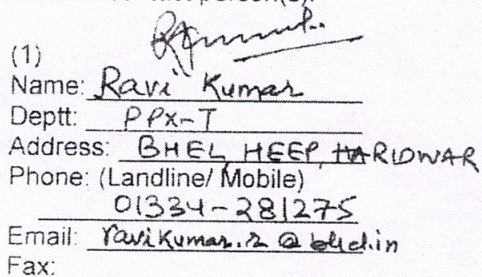 person(s):
(1)
Name: Ravi Kumar
Deptt: PPX-T
Address: BHEL, HEEP, HARIDWAR
Phone: (Landline/ Mobile)
01334-281275
Email: ravikumar.r@bhel.in
Fax: